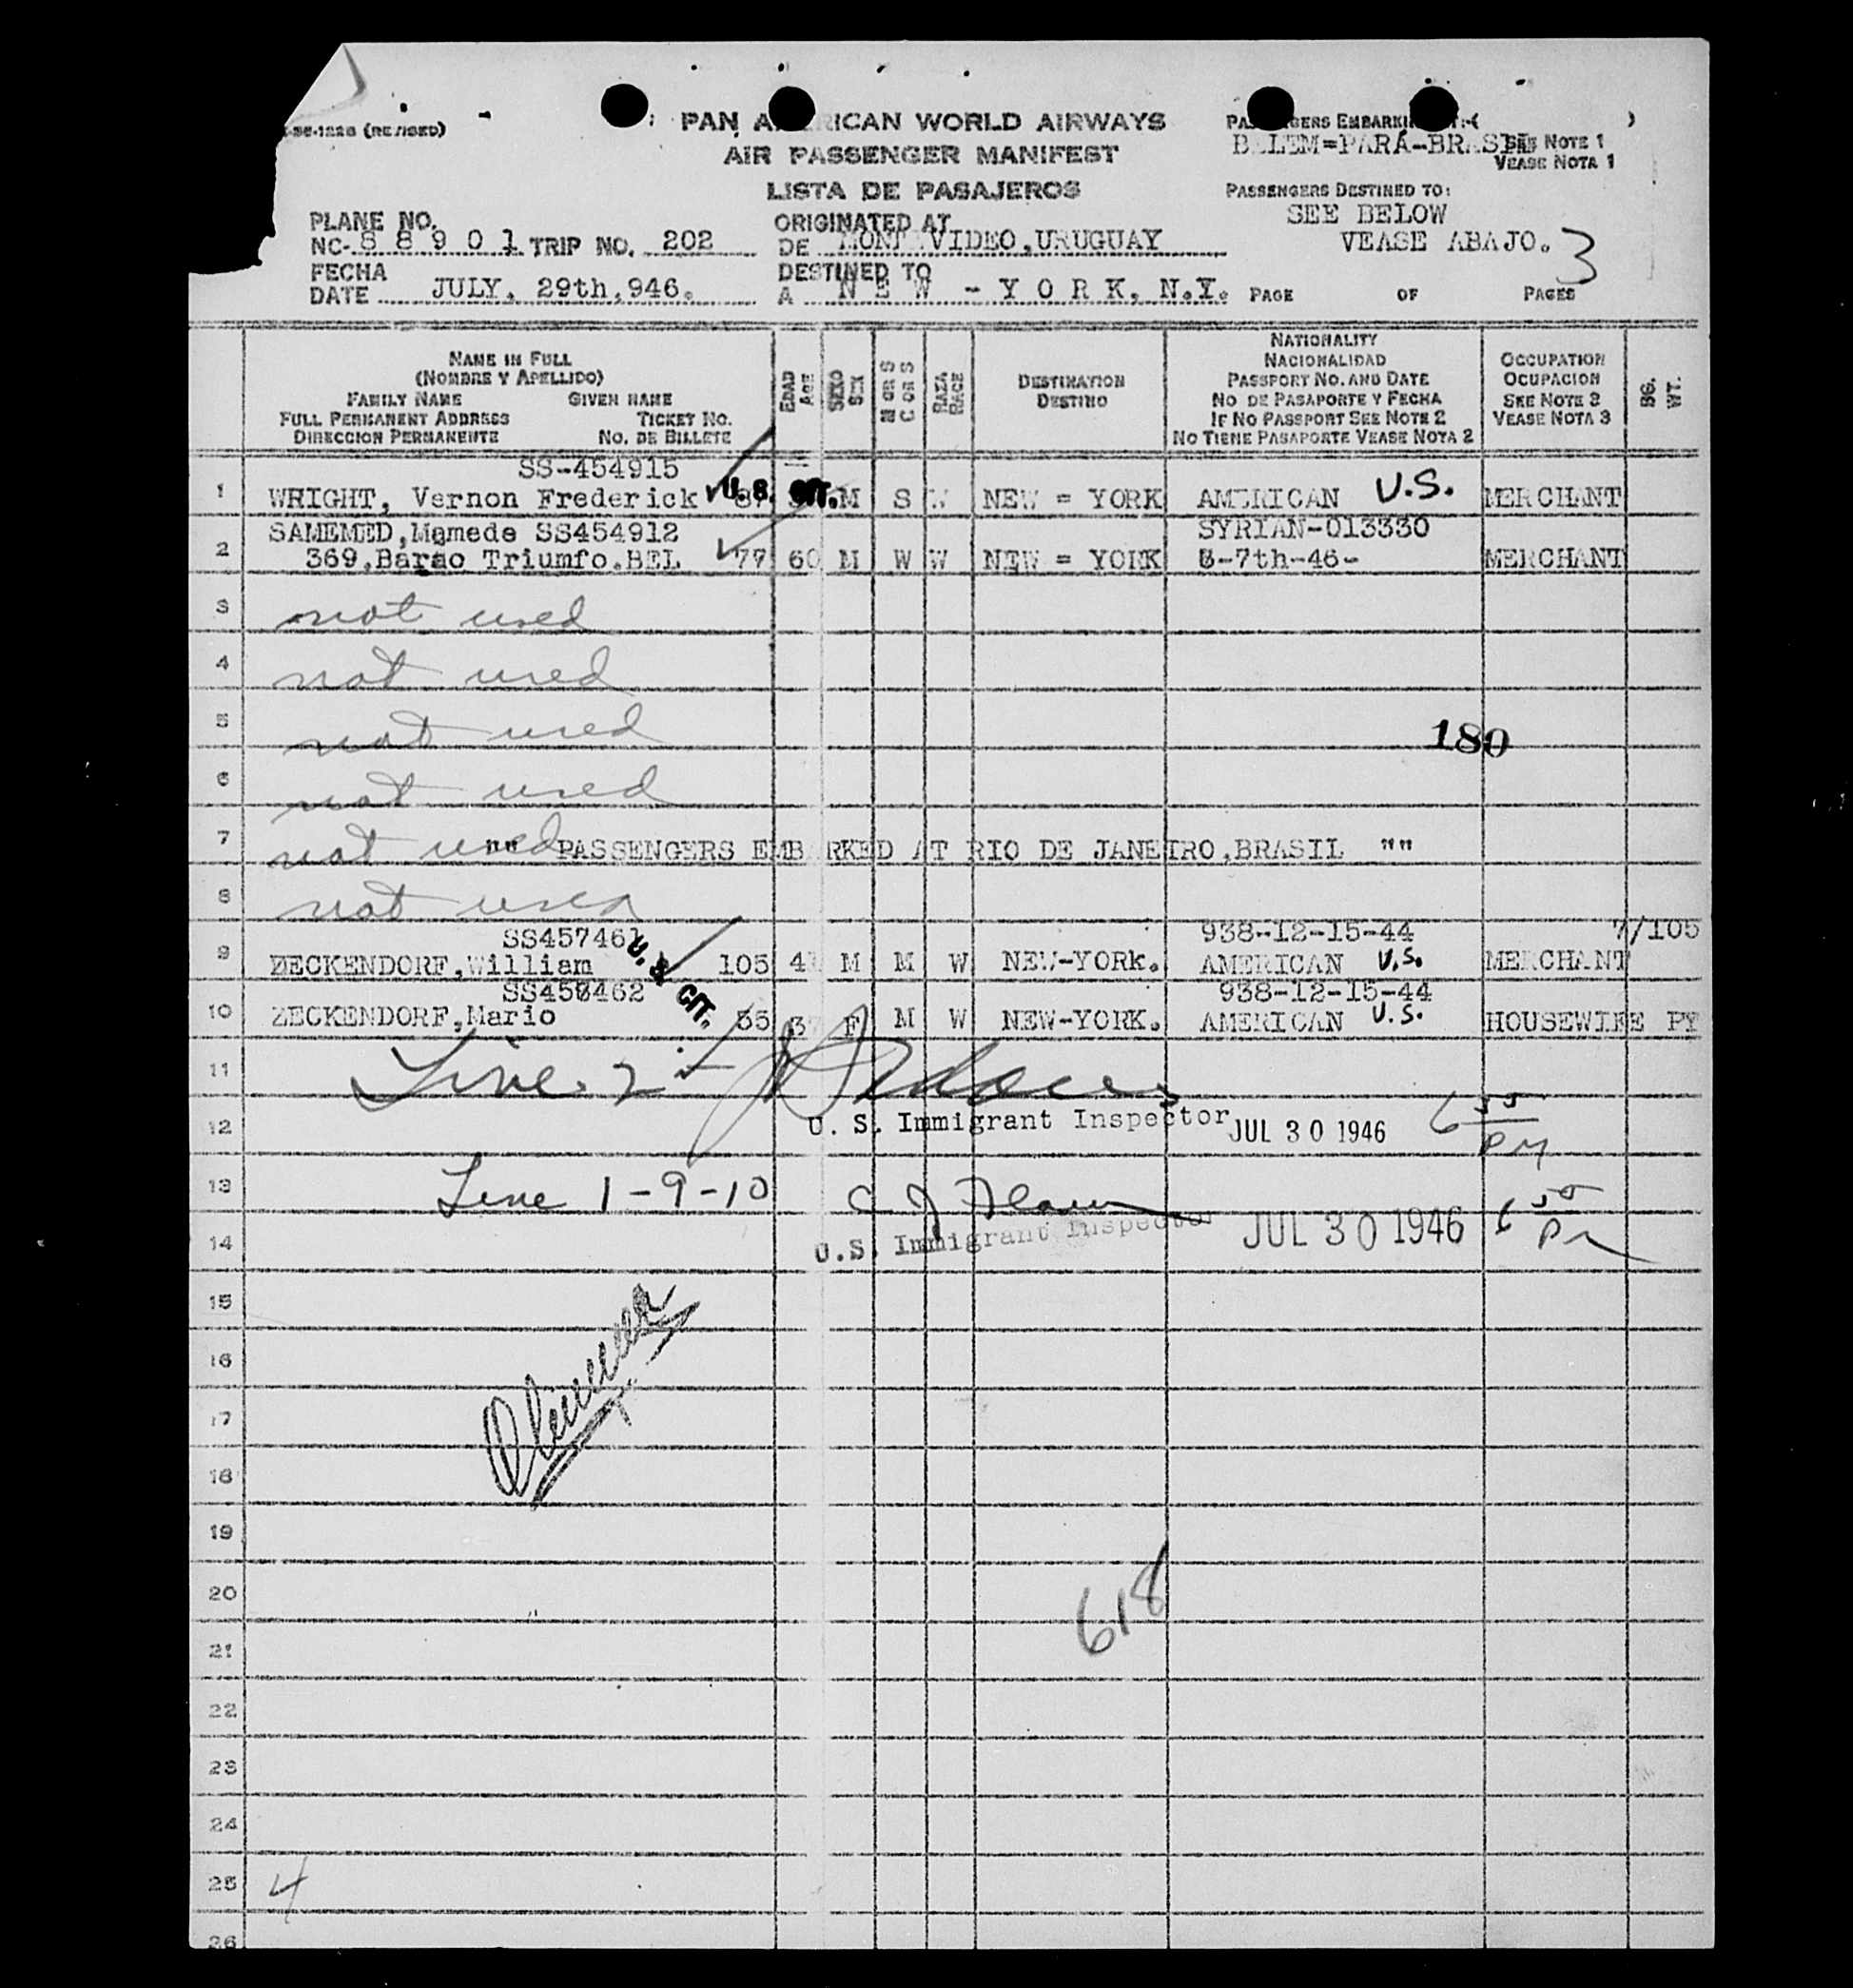 (REVISED)
PAN AMERICAN WORLD AIRWAYS
AIR PASSENGER MANIFEST
LISTA DE PASAJEROS
PASSENGERS EMBARKING AT:-( )
BELEM=PARÁ-BRASIL
SEE NOTE 1
VEASE NOTA 1
PASSENGERS DESTINED TO:
SEE BELOW
VEASE ABAJO.
3
PLANE NO.
NC- 88901 TRIP NO. 202
ORIGINATED AT
DE MONTEVIDEO,URUGUAY
FECHA
DATE JULY, 29th,946.
DESTINED TO
A NEW - YORK, N.Y.
PAGE OF PAGES
NAME IN FULL
(NOMBRE Y APELLIDO)
FAMILY NAME GIVEN NAME
FULL PERMANENT ADDRESS TICKET NO.
DIRECCION PERMANENTE NO. DE BILLETE
EDAD AGE
SEXO SEX
M OR S
C OR S
RAZA RACE
DESTINATION
DESTINO
NATIONALITY
NACIONALIDAD
PASSPORT NO. AND DATE
NO DE PASAPORTE Y FECHA
IF NO PASSPORT SEE NOTE 2
NO TIENE PASAPORTE VEASE NOTA 2
OCCUPATION
OCUPACION
SEE NOTE 3
VEASE NOTA 3
WT.
SS-454915
1 WRIGHT, Vernon Frederick U.S. CIT. M S W NEW = YORK AMERICAN U.S. MERCHANT
SAMEMED,Mamede SS454912 SYRIAN-013330
2 369,Barao Triumfo.BEL 77 60 M W W NEW = YORK 3-7th-46- MERCHANT
3 not used
4 not used
5 not used
180
6 not used
7 not used "" PASSENGERS EMBARKED AT RIO DE JANEIRO,BRASIL ""
8 not used
SS457461 938-12-15-44 7/105
9 ZECKENDORF,William U.S. CIT. 105 M M W NEW-YORk. AMERICAN U.S. MERCHANT
SS458462 938-12-15-44
10 ZECKENDORF,Mario 55 37 F M W NEW-YORK. AMERICAN U.S. HOUSEWIFE PY
11 Line 2 -
12 U. S. Immigrant Inspector JUL 30 1946 6 55 PM
13 Line 1-9-10
14 U.S. Immigrant Inspector JUL 30 1946 6 50 PM
15
16
17
18
19
20
618
21
22
23
24
25 4
26